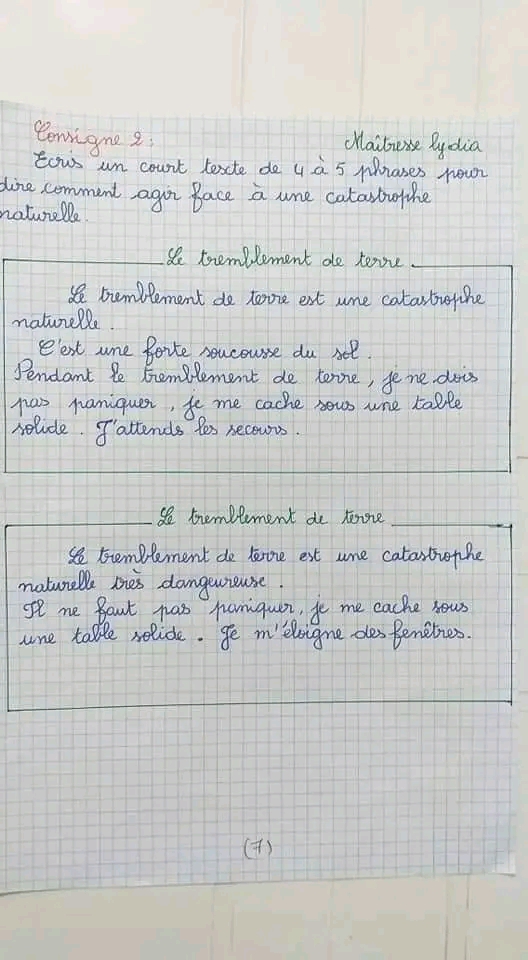 Consigne 2:
Maîtresse lydia
Ecris un court texte de 4 à 5 phrases pour
dire comment agir face à une catastrophe
naturelle.
Le tremblement de terre
Le tremblement de terre est une catastrophe
naturelle.
C'est une forte soucousse du sol.
Pendant le tremblement de terre, je ne dois
pas paniquer, je me cache sous une table
solide. J'attends les secours.
Le tremblement de terre
Le tremblement de terre est une catastrophe
naturelle très dangeureuse.
Il ne faut pas paniquer, je me cache sous
une table solide. Je m'éloigne des fenêtres.
(7)